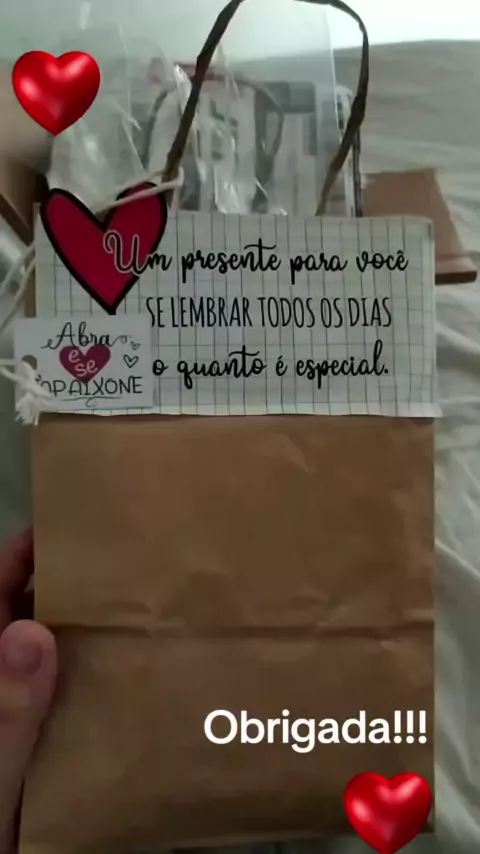 Um presente para você
SE LEMBRAR TODOS OS DIAS
o quanto é especial.
Abra
e se
APAIXONE
Obrigada!!!